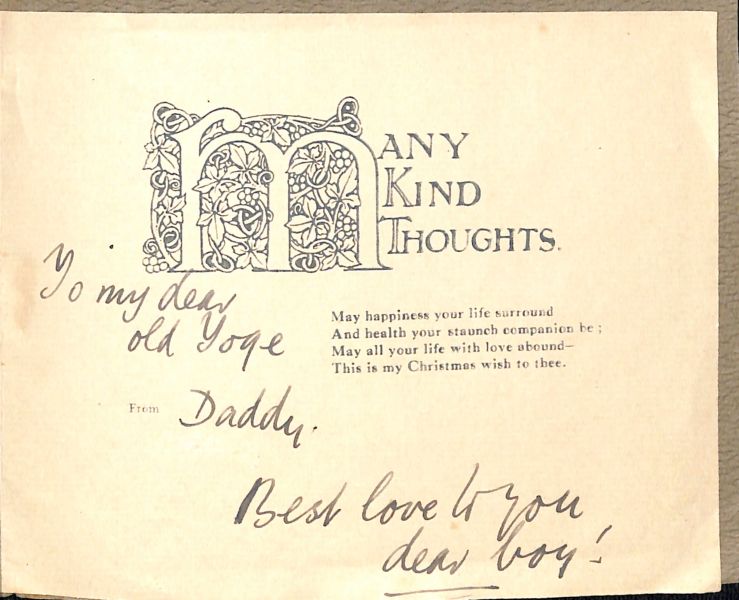 MANY
KIND
THOUGHTS.
To my dear
old Yoge
May happiness your life surround
And health your staunch companion be ;
May all your life with love abound—
This is my Christmas wish to thee.
From Daddy.
Best love to you
dear boy!